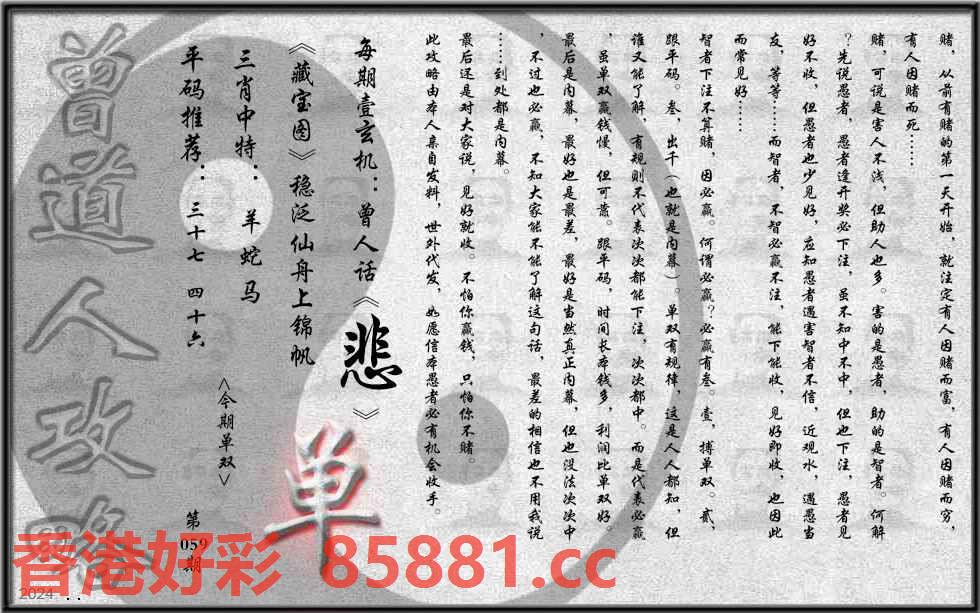 赌，从前有赌的第一天开始，就注定有人因赌而富，有人因赌而穷，
有人因赌而死……
赌，可说是害人不浅，但助人也多。害的是愚者，助的是智者。何解
？先说愚者，愚者逢开奖必下注，虽不知中不中，但也下注，愚者见
好不收，但愚者也少见好，应知愚者遇害智者不信，近观水，遇愚当
友，等等……而智者，不智必赢不注，能下能收，见好即收，也因此
而常见好……
智者下注不算赌，因必赢。何谓必赢？必赢有叁。壹，搏单双。贰，
跟平码。叁，出千（也就是内幕）。单双有规律，这是人人都知，但
谁又能了解，有规则不代表次次都能下注，次次都中。而是代表必赢
，虽单双赢钱慢，但可蓄。跟平码，时间长本钱多，利润比单双好。
最后是内幕，最好也是最差，最好是当然真正内幕，但也没法次次中
，不过也必赢，不知大家能不能了解这句话，最差的相信也不用我说
……到处都是内幕。
最后还是对大家说，见好就收。不怕你赢钱，只怕你不赌。
此攻略由本人亲自发料，世外代发，如愿信本愚者必有机会收手。
每期壹玄机：曾人话《悲》
《藏宝图》稳泛仙舟上锦帆
三肖中特：羊蛇马
平码推荐：三十七 四十六
<今期单双>
单
第059期
曾道人攻略
香港好彩 85881.cc
2024